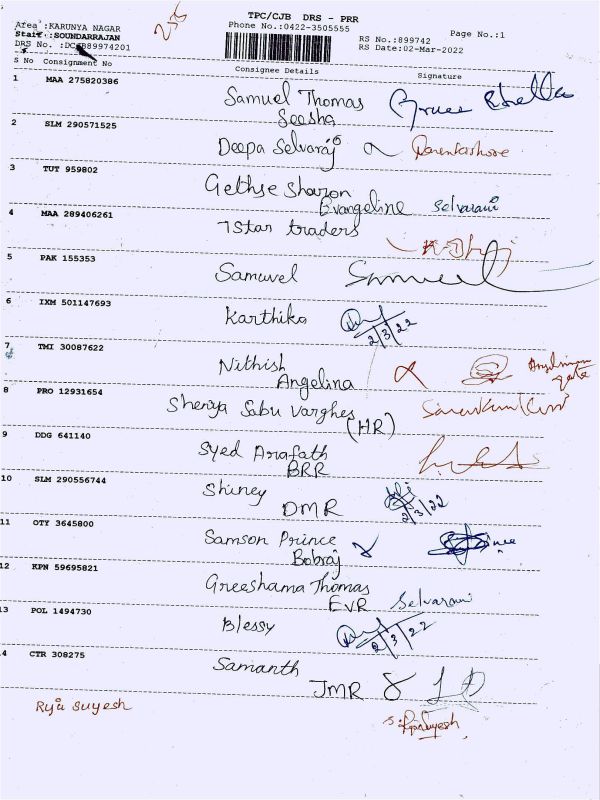 236
TPC/CJB DRS - PRR
Area :KARUNYA NAGAR
Phone No.:0422-3505555
Page No.:1
Staff :SOUNDARRAJAN
RS No.:899742
DRS No. :DCCB89974201
RS Date:02-Mar-2022
S No Consignment No Consignee Details Signature
1 MAA 275820386
Samuel Thomas
Seesha
2 SLM 290571525
Deepa Selvaraj
3 TUT 959802
Gethse Sharon
Evangeline Selvarani
4 MAA 289406261
7 Star traders
5 PAK 155353
Samuvel Samuel
6 IXM 501147693
Karthika
2/3/22
7 TMI 30087622
Nithish
Angelina
8 PRO 12931654
Sherya Sabu Varghes
(HR)
9 DDG 641140
Syed Arafath
BRR
10 SLM 290556744
Shiney
DMR 2/3/22
11 OTY 3645800
Samson Prince
Bobraj
12 KPN 59695821
Greeshama Thomas
EVR Selvarani
13 POL 1494730
Blessy
2/3/22
14 CTR 308275
Samanth
JMR
Ryja Suyesh